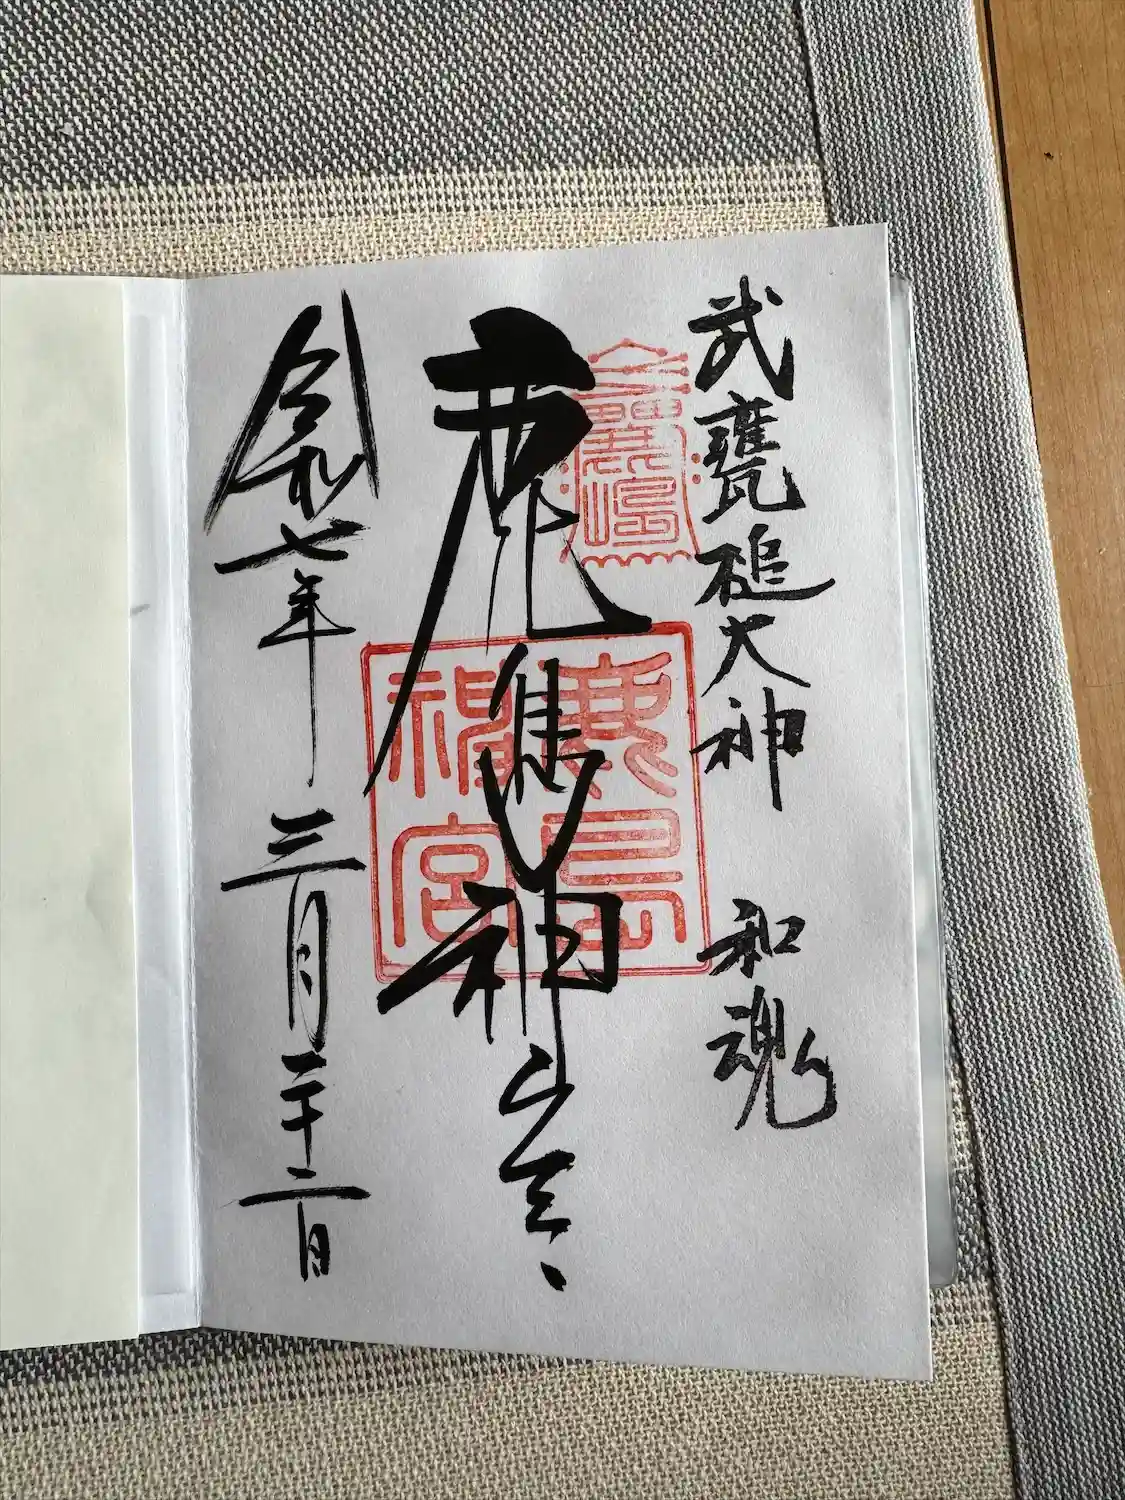 武甕槌大神　和魂
鹿島神宮
鹿島
鹿島神宮
令和七年　三月二十二日